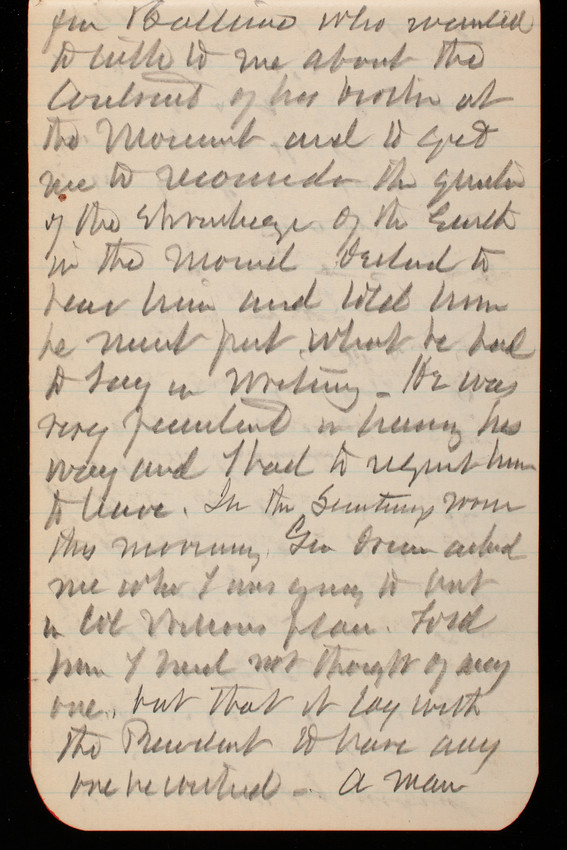 who wanted
to talk to me about the
Contract of his brother at
the Monument and to get
me to reconsider the question
of the Shrinkage of the Earth
in the Mound Declined to
hear him and told him
he must put what he had
to say in Writing - He was
very persistent in having his
way and I had to request him
to leave. In the Secretarys room
this morning Gen Drum asked
me who I was going to put
in Col Wilsons place. Told
him I had not thought of any
one, but that it lay with
the President to have any
one he wished - A man